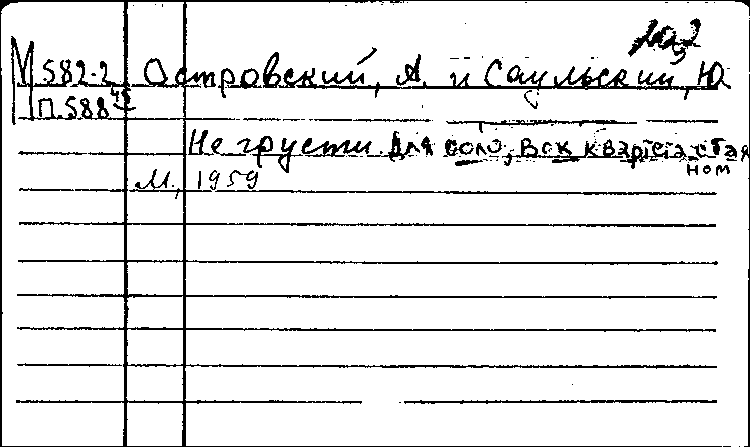 М 582-2 Островский, А. и Саульский, Ю
П.588
Не грусти. Для соло, вок квартета с ф-
ном
М., 1959